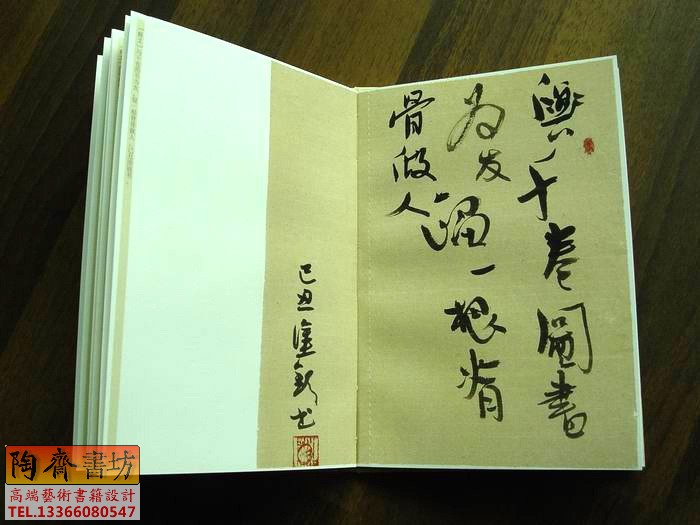 與千卷圖書
为友留一根脊
骨做人
己丑
陶齋書坊
高端藝術書籍設計
TEL.13366080547